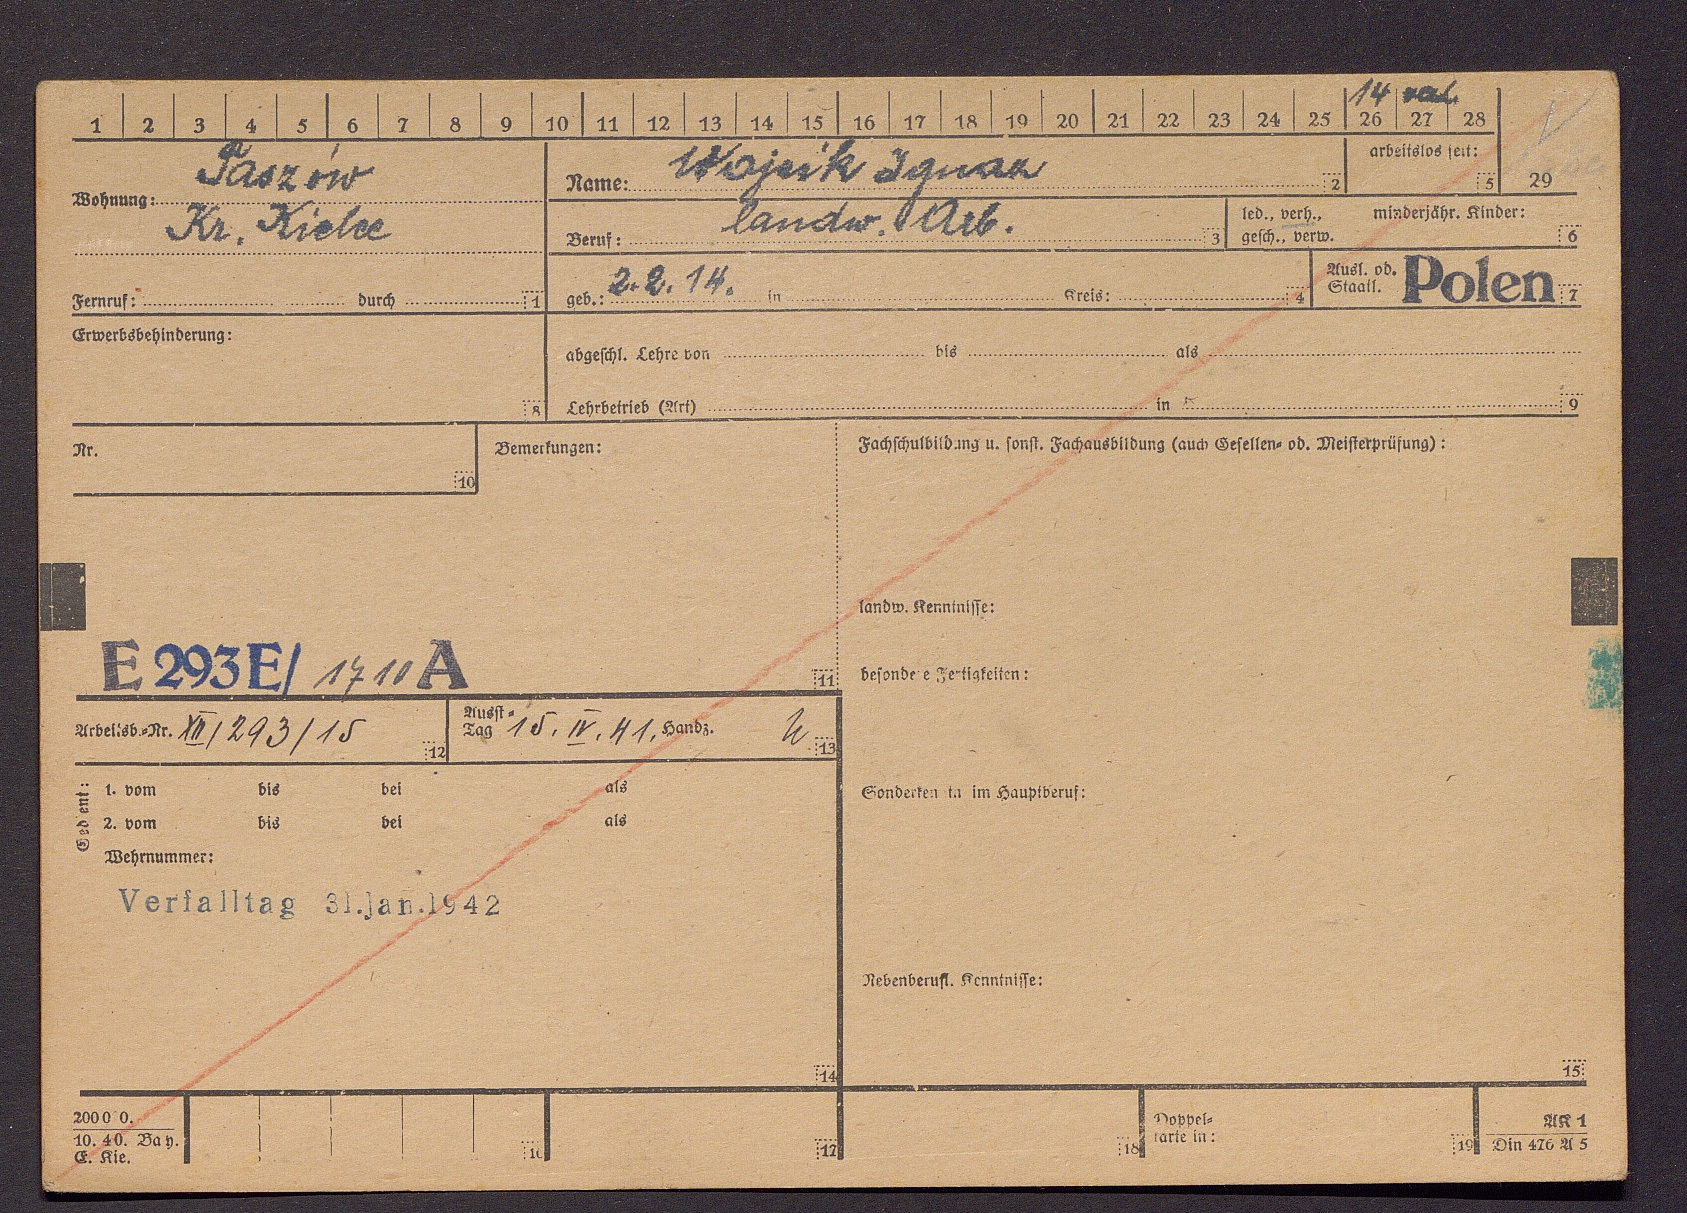 14
1 2 3 4 5 6 7 8 9 10 11 12 13 14 15 16 17 18 19 20 21 22 23 24 25 26 27 28
Wohnung: Paszów
Kr. Kielce
Fernruf: durch 1
Name: Wojcik Ignaz 2
arbeitslos seit: 5
29
Beruf: landw. Arb. 3
led., verh., minderjähr. Kinder:
gesch., verw. 6
geb.: 2.2.14. in Kreis: 4
Ausl. od. Staatl. Polen 7
Erwerbsbehinderung:
8
abgeschl. Lehre von bis als
Lehrbetrieb (Art) in 9
Nr.
10
Bemerkungen:
Fachschulbildung u. sonst. Fachausbildung (auch Gesellen- od. Meisterprüfung):
landw. Kenntnisse:
E 293 E/ 1710 A
11
besondere Fertigkeiten:
Arbeitsb.-Nr. XII/293/15 12
Ausst.-Tag 15. IV. 41. Handz. 13
Gedient:
1. vom bis bei als
2. vom bis bei als
Wehrnummer:
Sonderken im Hauptberuf:
Verfalltag 31. Jan. 1942
Nebenberufl. Kenntnisse:
14
15
20000 0.
10. 40. Bay.
E. Kie.
16
17
18
Doppel-
karte in:
19
AK 1
Din 476 A 5